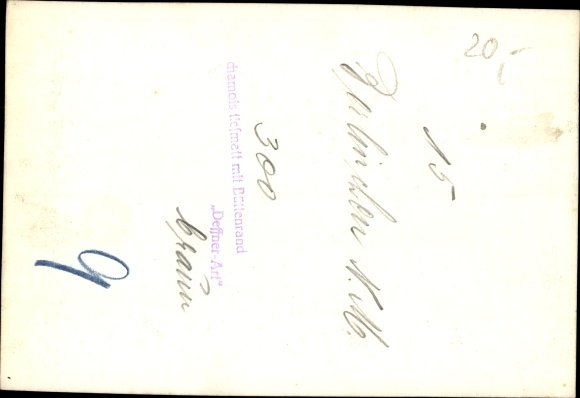 20,-
15
Berlinchen N.M.
300
chamois tiefmatt mit Büttenrand
„Deffner-Art“
braun
9